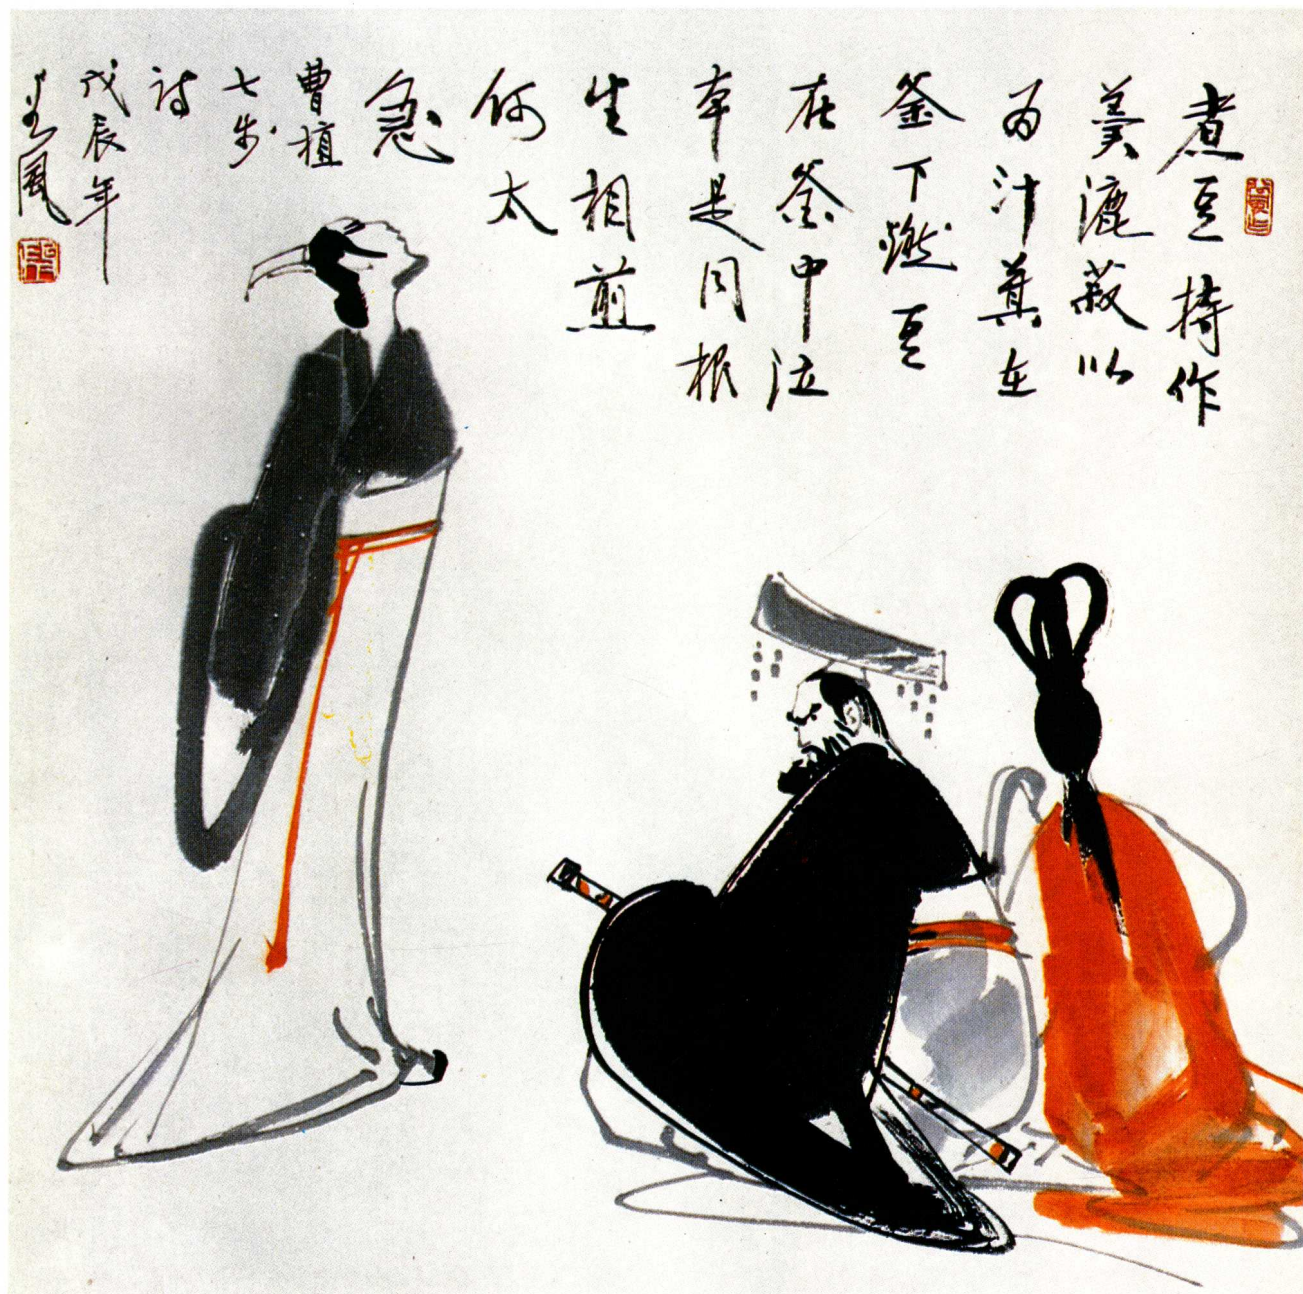 煮豆持作
羹漉菽以
为汁萁在
釜下燃豆
在釜中泣
本是同根
生相煎
何太
急
曹植
七步
诗
戊辰年
風